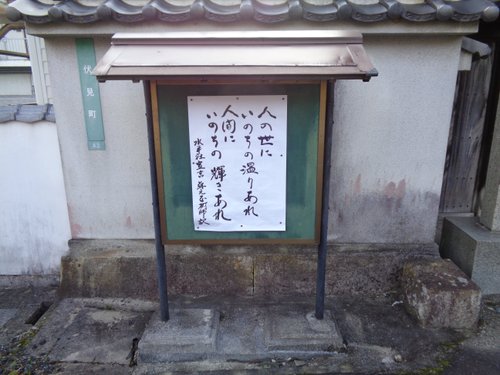 人の世に
いのちの温りあれ
人間に
いのちの輝きあれ
水平社宣言
伏見町